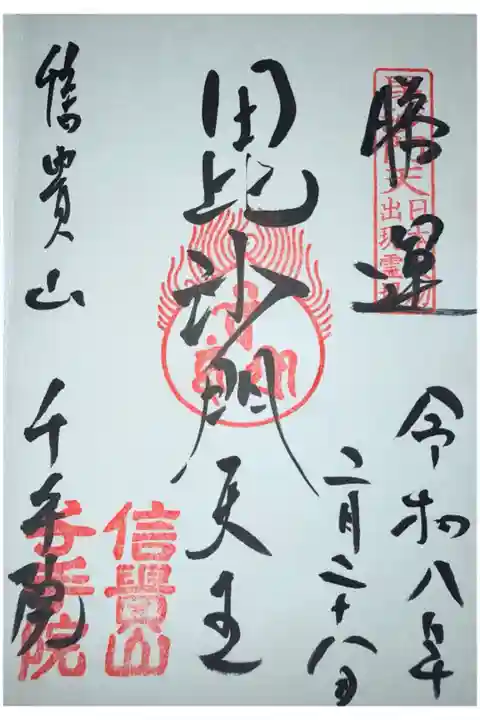 勝運
令和八年
二月二十八日
毘沙門天王
信貴山 千手院
毘沙門天
日本最初
出現霊場
信貴山
千手院